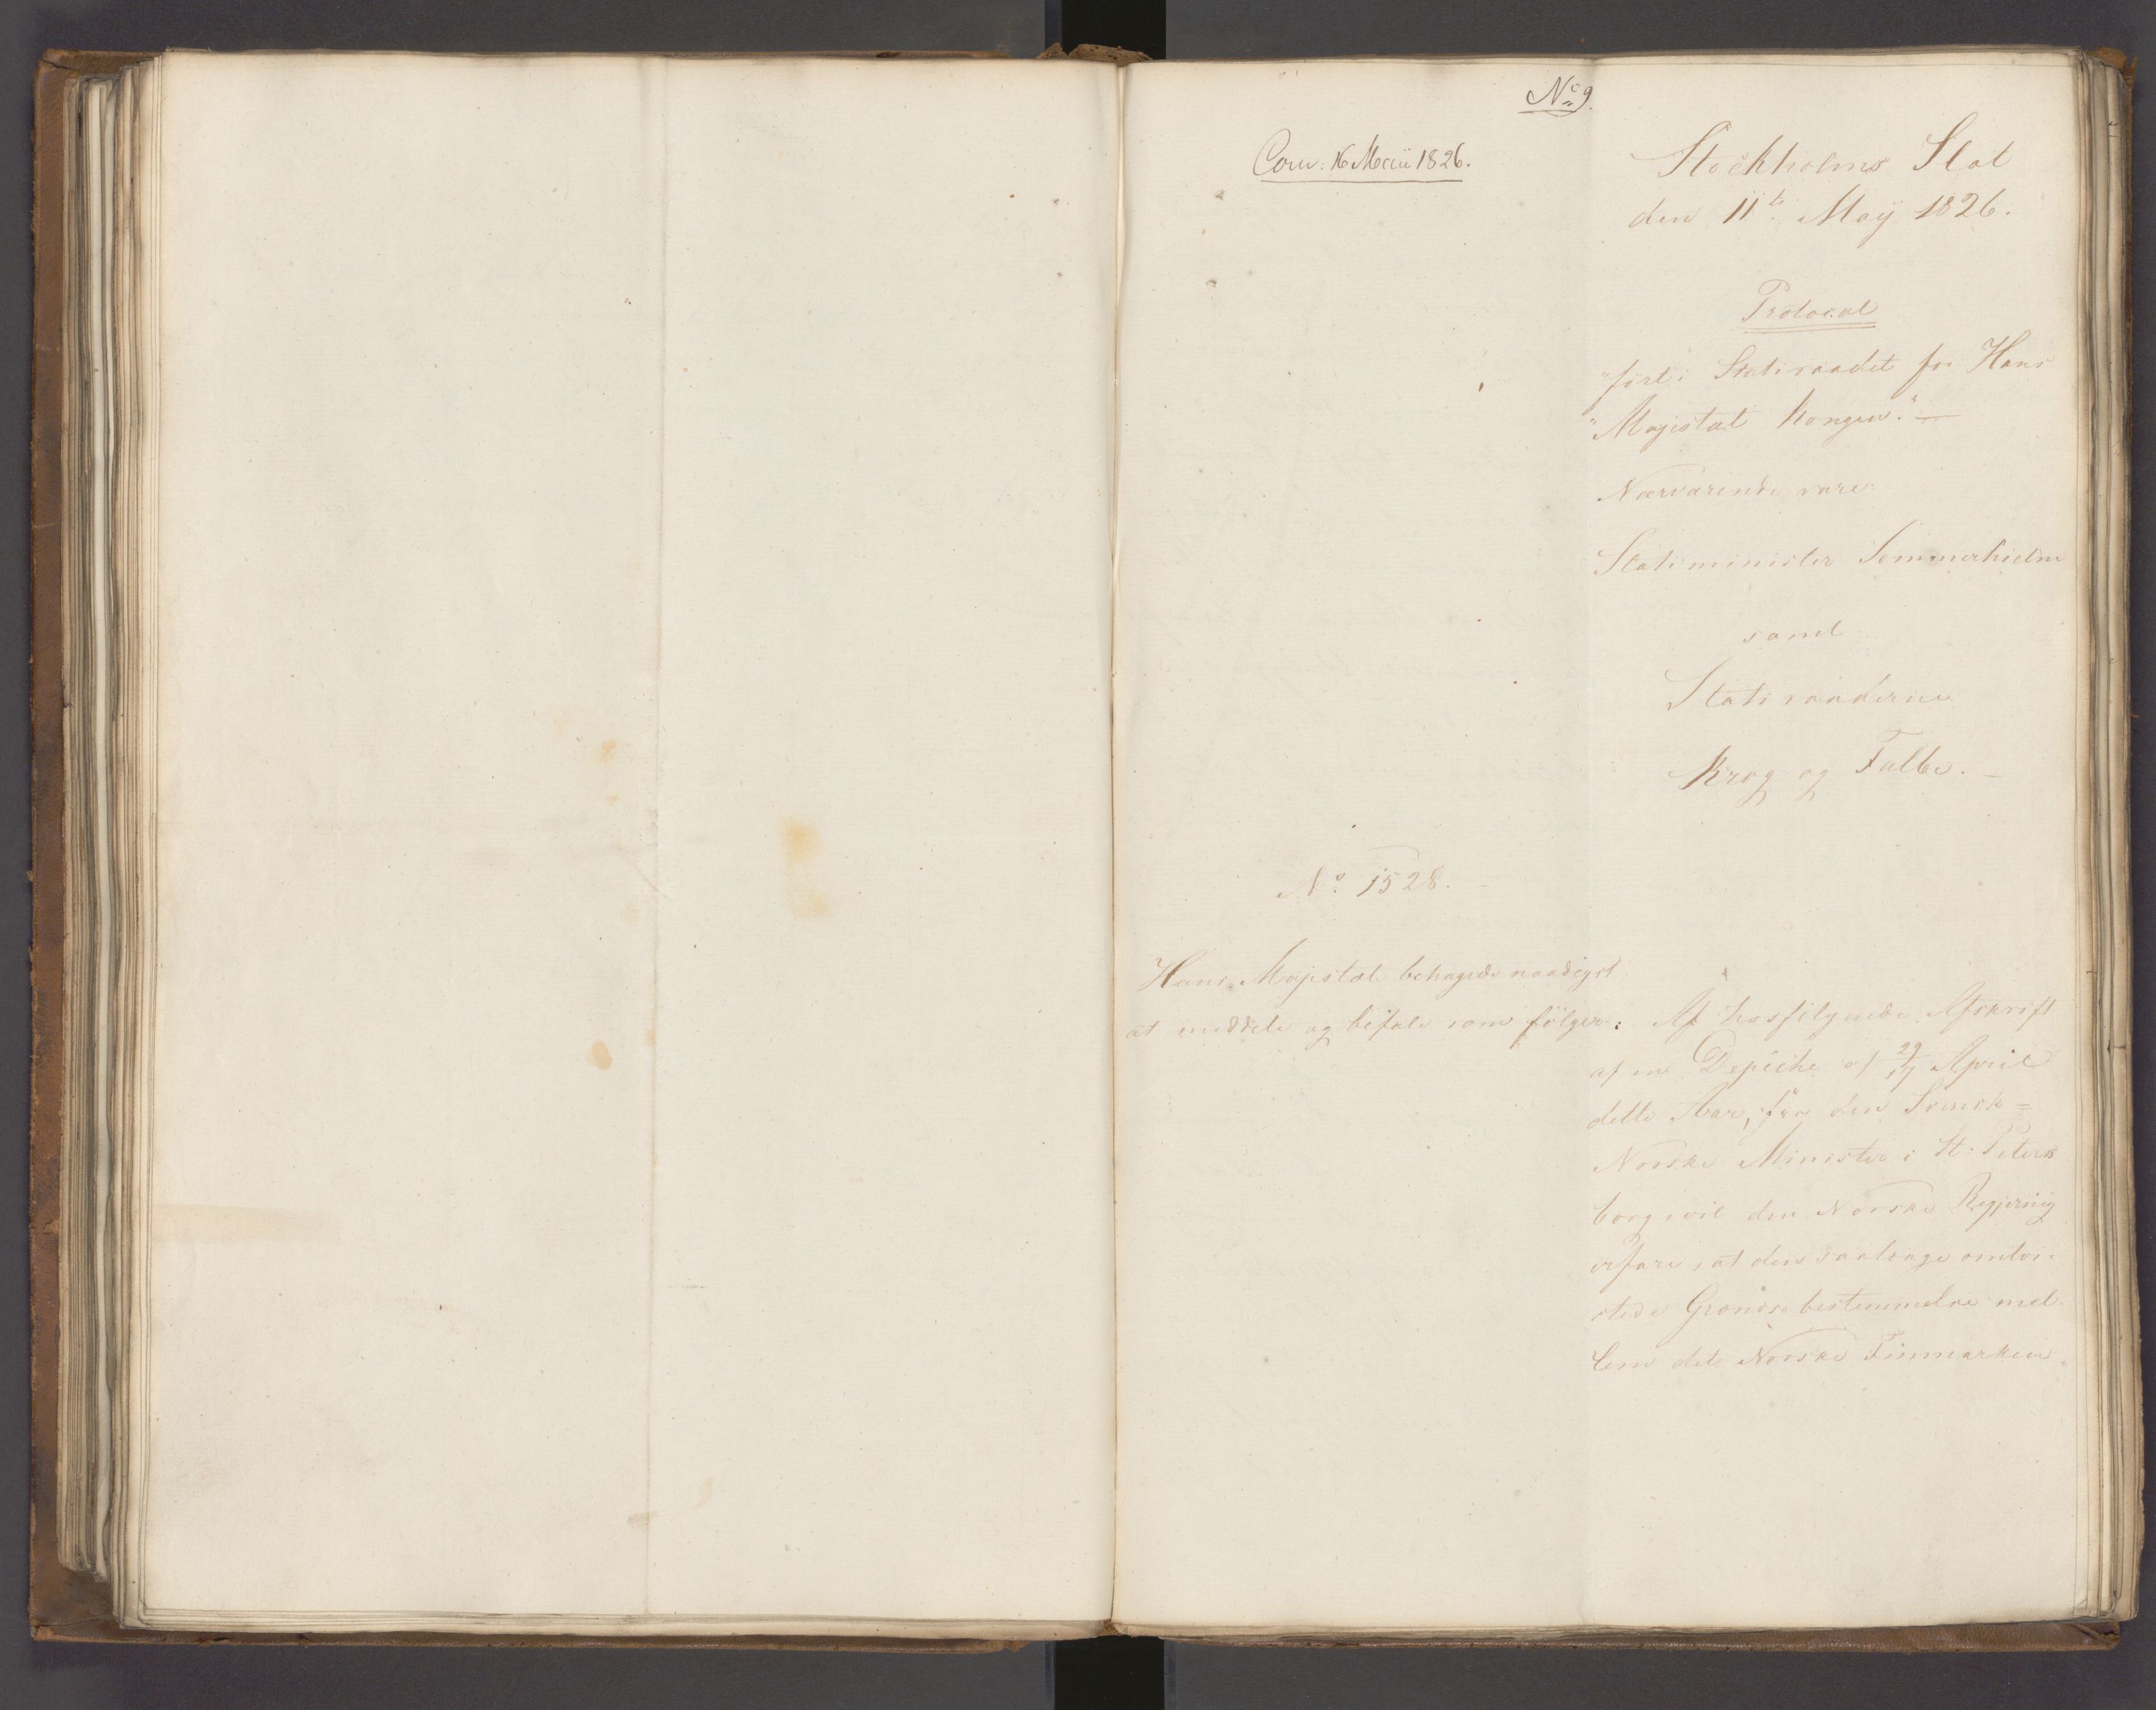 No 9.
Com: 16 Maii 1826.
Stockholms Slot
den 11te May 1826.
Protocol
"ført i Statsraadet for Hans
"Majestæt Kongen." —
Nærværende vare:
Statsminister Sommerhielm
samt
Statsraaderne
Krog og Falbe. —
No 1528.
Hans Majestæt behagede naadigst
at meddele og befale som følger:
Af hosfølgende Afskrift
af en Depêche af 29/17 April
dette Aar, fra den Svensk=
Norske Minister i St. Peters
borg vil den Norske Regjering
erfare, at den saalænge omtvi-
stede Grændsebestemmelse mel-
lem det Norske Finmarken